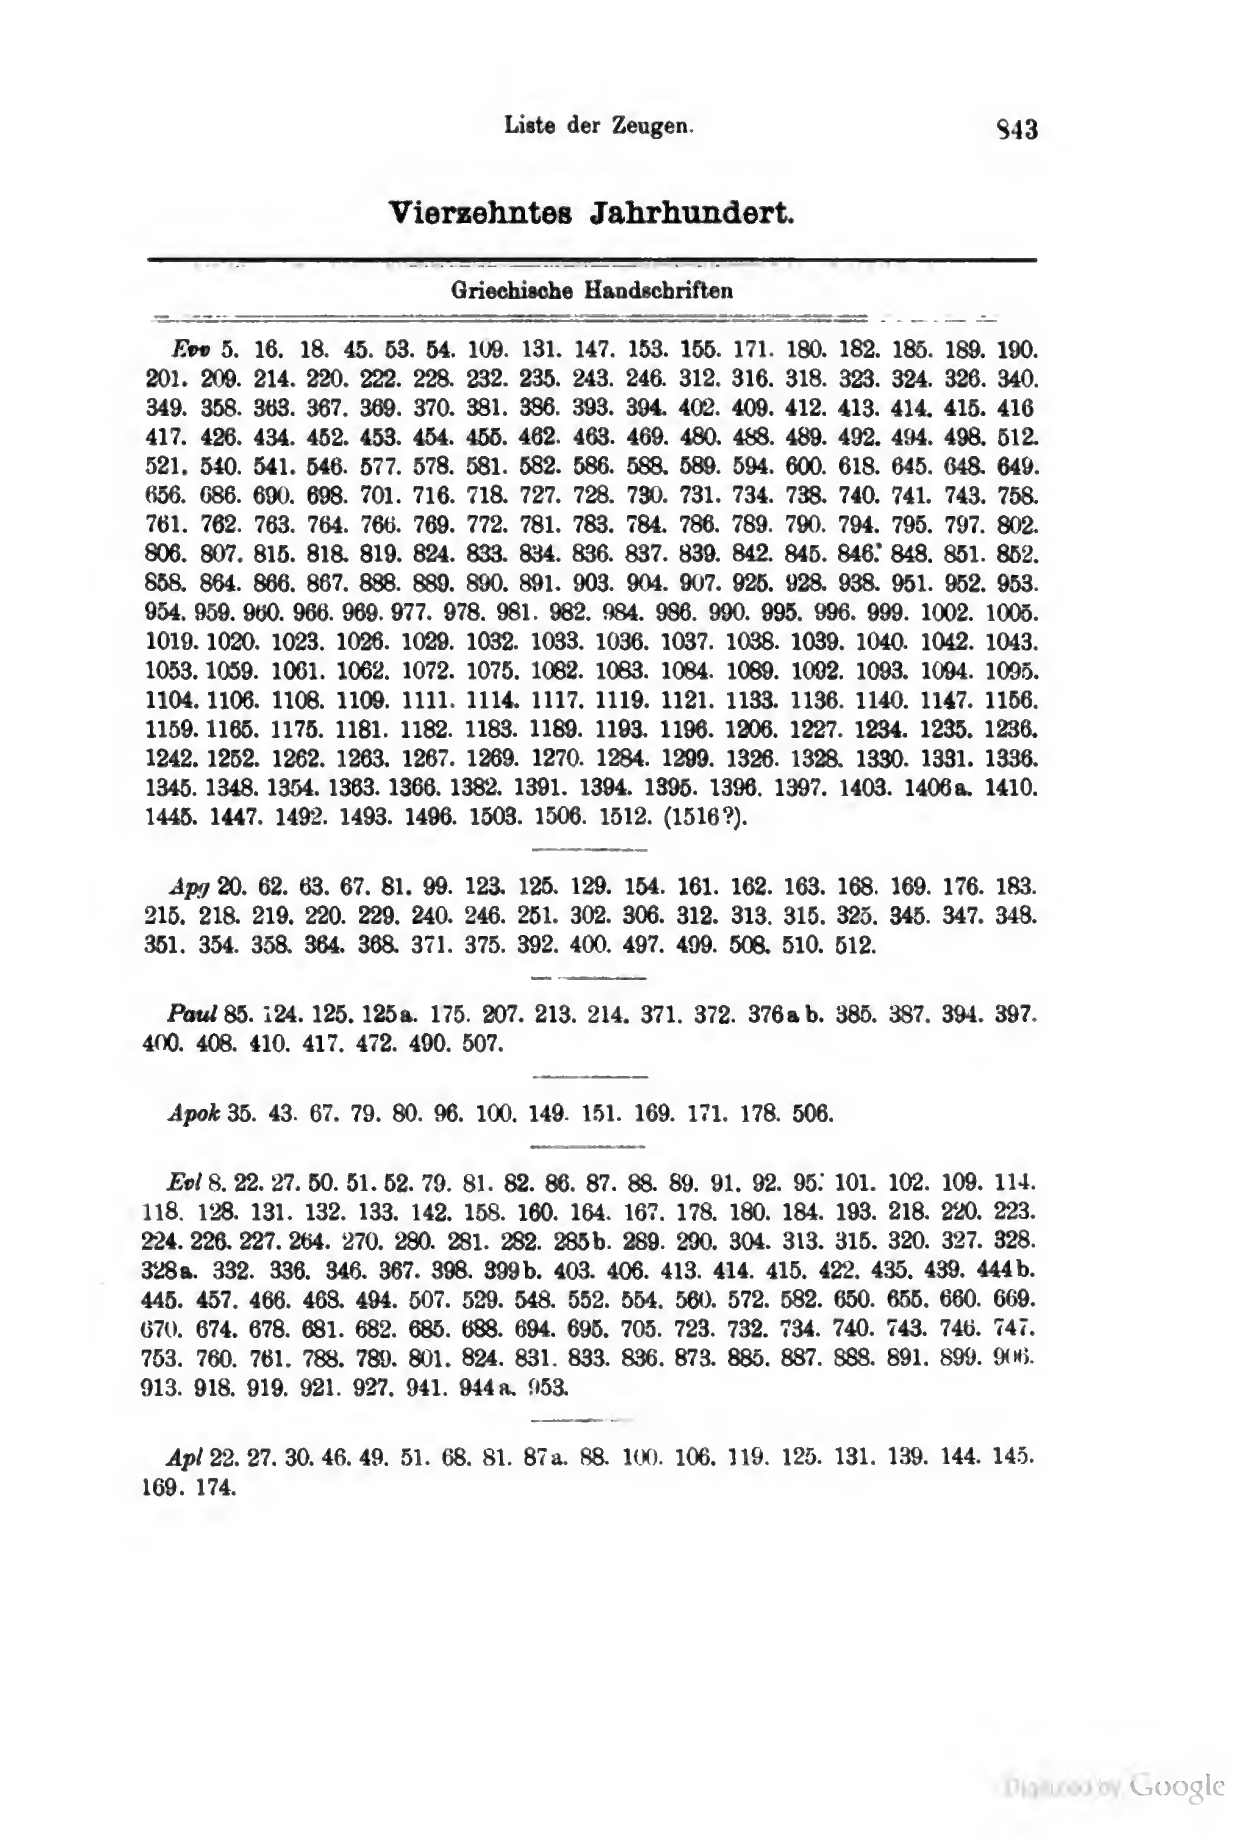 Liste der Zeugen. 843
Vierzehntes Jahrhundert.
Griechische Handschriften
Evv 5. 16. 18. 45. 53. 54. 109. 131. 147. 153. 155. 171. 180. 182. 185. 189. 190.
201. 209. 214. 220. 222. 228. 232. 235. 243. 246. 312. 316. 318. 323. 324. 326. 340.
349. 358. 363. 367. 369. 370. 381. 386. 393. 394. 402. 409. 412. 413. 414. 415. 416
417. 426. 434. 452. 453. 454. 455. 462. 463. 469. 480. 488. 489. 492. 494. 498. 512.
521. 540. 541. 546. 577. 578. 581. 582. 586. 588. 589. 594. 600. 618. 645. 648. 649.
656. 686. 690. 698. 701. 716. 718. 727. 728. 730. 731. 734. 738. 740. 741. 743. 758.
761. 762. 763. 764. 766. 769. 772. 781. 783. 784. 786. 789. 790. 794. 795. 797. 802.
806. 807. 815. 818. 819. 824. 833. 834. 836. 837. 839. 842. 845. 846. 848. 851. 852.
858. 864. 866. 867. 888. 889. 890. 891. 903. 904. 907. 925. 928. 938. 951. 952. 953.
954. 959. 960. 966. 969. 977. 978. 981. 982. 984. 986. 990. 995. 996. 999. 1002. 1005.
1019. 1020. 1023. 1026. 1029. 1032. 1033. 1036. 1037. 1038. 1039. 1040. 1042. 1043.
1053. 1059. 1061. 1062. 1072. 1075. 1082. 1083. 1084. 1089. 1092. 1093. 1094. 1095.
1104. 1106. 1108. 1109. 1111. 1114. 1117. 1119. 1121. 1133. 1136. 1140. 1147. 1156.
1159. 1165. 1175. 1181. 1182. 1183. 1189. 1193. 1196. 1206. 1227. 1234. 1235. 1236.
1242. 1252. 1262. 1263. 1267. 1269. 1270. 1284. 1299. 1326. 1328. 1330. 1331. 1336.
1345. 1348. 1354. 1363. 1366. 1382. 1391. 1394. 1395. 1396. 1397. 1403. 1406a. 1410.
1445. 1447. 1492. 1493. 1496. 1503. 1506. 1512. (1516?).
Apg 20. 62. 63. 67. 81. 99. 123. 125. 129. 154. 161. 162. 163. 168. 169. 176. 183.
215. 218. 219. 220. 229. 240. 246. 251. 302. 306. 312. 313. 315. 325. 345. 347. 348.
351. 354. 358. 364. 368. 371. 375. 392. 400. 497. 499. 508. 510. 512.
Paul 85. 124. 125. 125a. 175. 207. 213. 214. 371. 372. 376a b. 385. 387. 394. 397.
400. 408. 410. 417. 472. 490. 507.
Apok 35. 43. 67. 79. 80. 96. 100. 149. 151. 169. 171. 178. 506.
Evl 8. 22. 27. 50. 51. 52. 79. 81. 82. 86. 87. 88. 89. 91. 92. 95. 101. 102. 109. 114.
118. 128. 131. 132. 133. 142. 158. 160. 164. 167. 178. 180. 184. 193. 218. 220. 223.
224. 226. 227. 264. 270. 280. 281. 282. 285b. 289. 290. 304. 313. 315. 320. 327. 328.
328a. 332. 336. 346. 367. 398. 399b. 403. 406. 413. 414. 415. 422. 435. 439. 444b.
445. 457. 466. 468. 494. 507. 529. 548. 552. 554. 560. 572. 582. 650. 655. 660. 669.
670. 674. 678. 681. 682. 685. 688. 694. 695. 705. 723. 732. 734. 740. 743. 746. 747.
753. 760. 761. 788. 789. 801. 824. 831. 833. 836. 873. 885. 887. 888. 891. 899. 906.
913. 918. 919. 921. 927. 941. 944a. 953.
Apl 22. 27. 30. 46. 49. 51. 68. 81. 87a. 88. 100. 106. 119. 125. 131. 139. 144. 145.
169. 174.
Digitized by Google